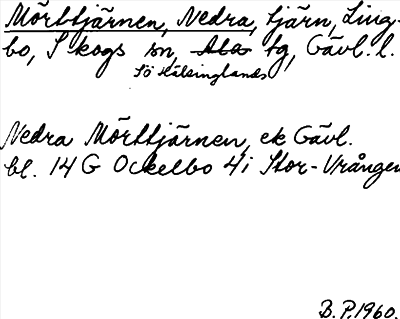 Mörttjärnen, Nedra, tjärn, Ling-
bo, Skogs sn, Ala tg, Gävl. l.
Sö Hälsinglands
Nedra Mörttjärnen, ek Gävl.
bl. 14 G Ockelbo 4i Stor-Vrången
B.P. 1960.